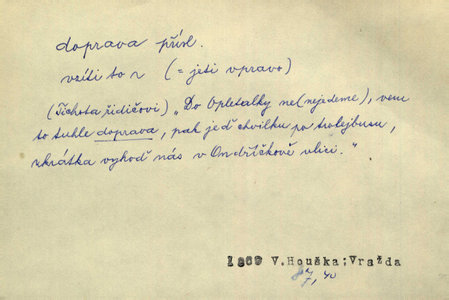 doprava přísl.
vzíti to r (= jeti vpravo)
(Tichota řidičovi) „Do Opletalky ne (nejedeme), vem
to tuhle doprava, pak jeď chvilku po trolejbusu,
zkrátka vyhoď nás v Ondříčkově ulici."
1969 V.Houška:Vražda
87, 40